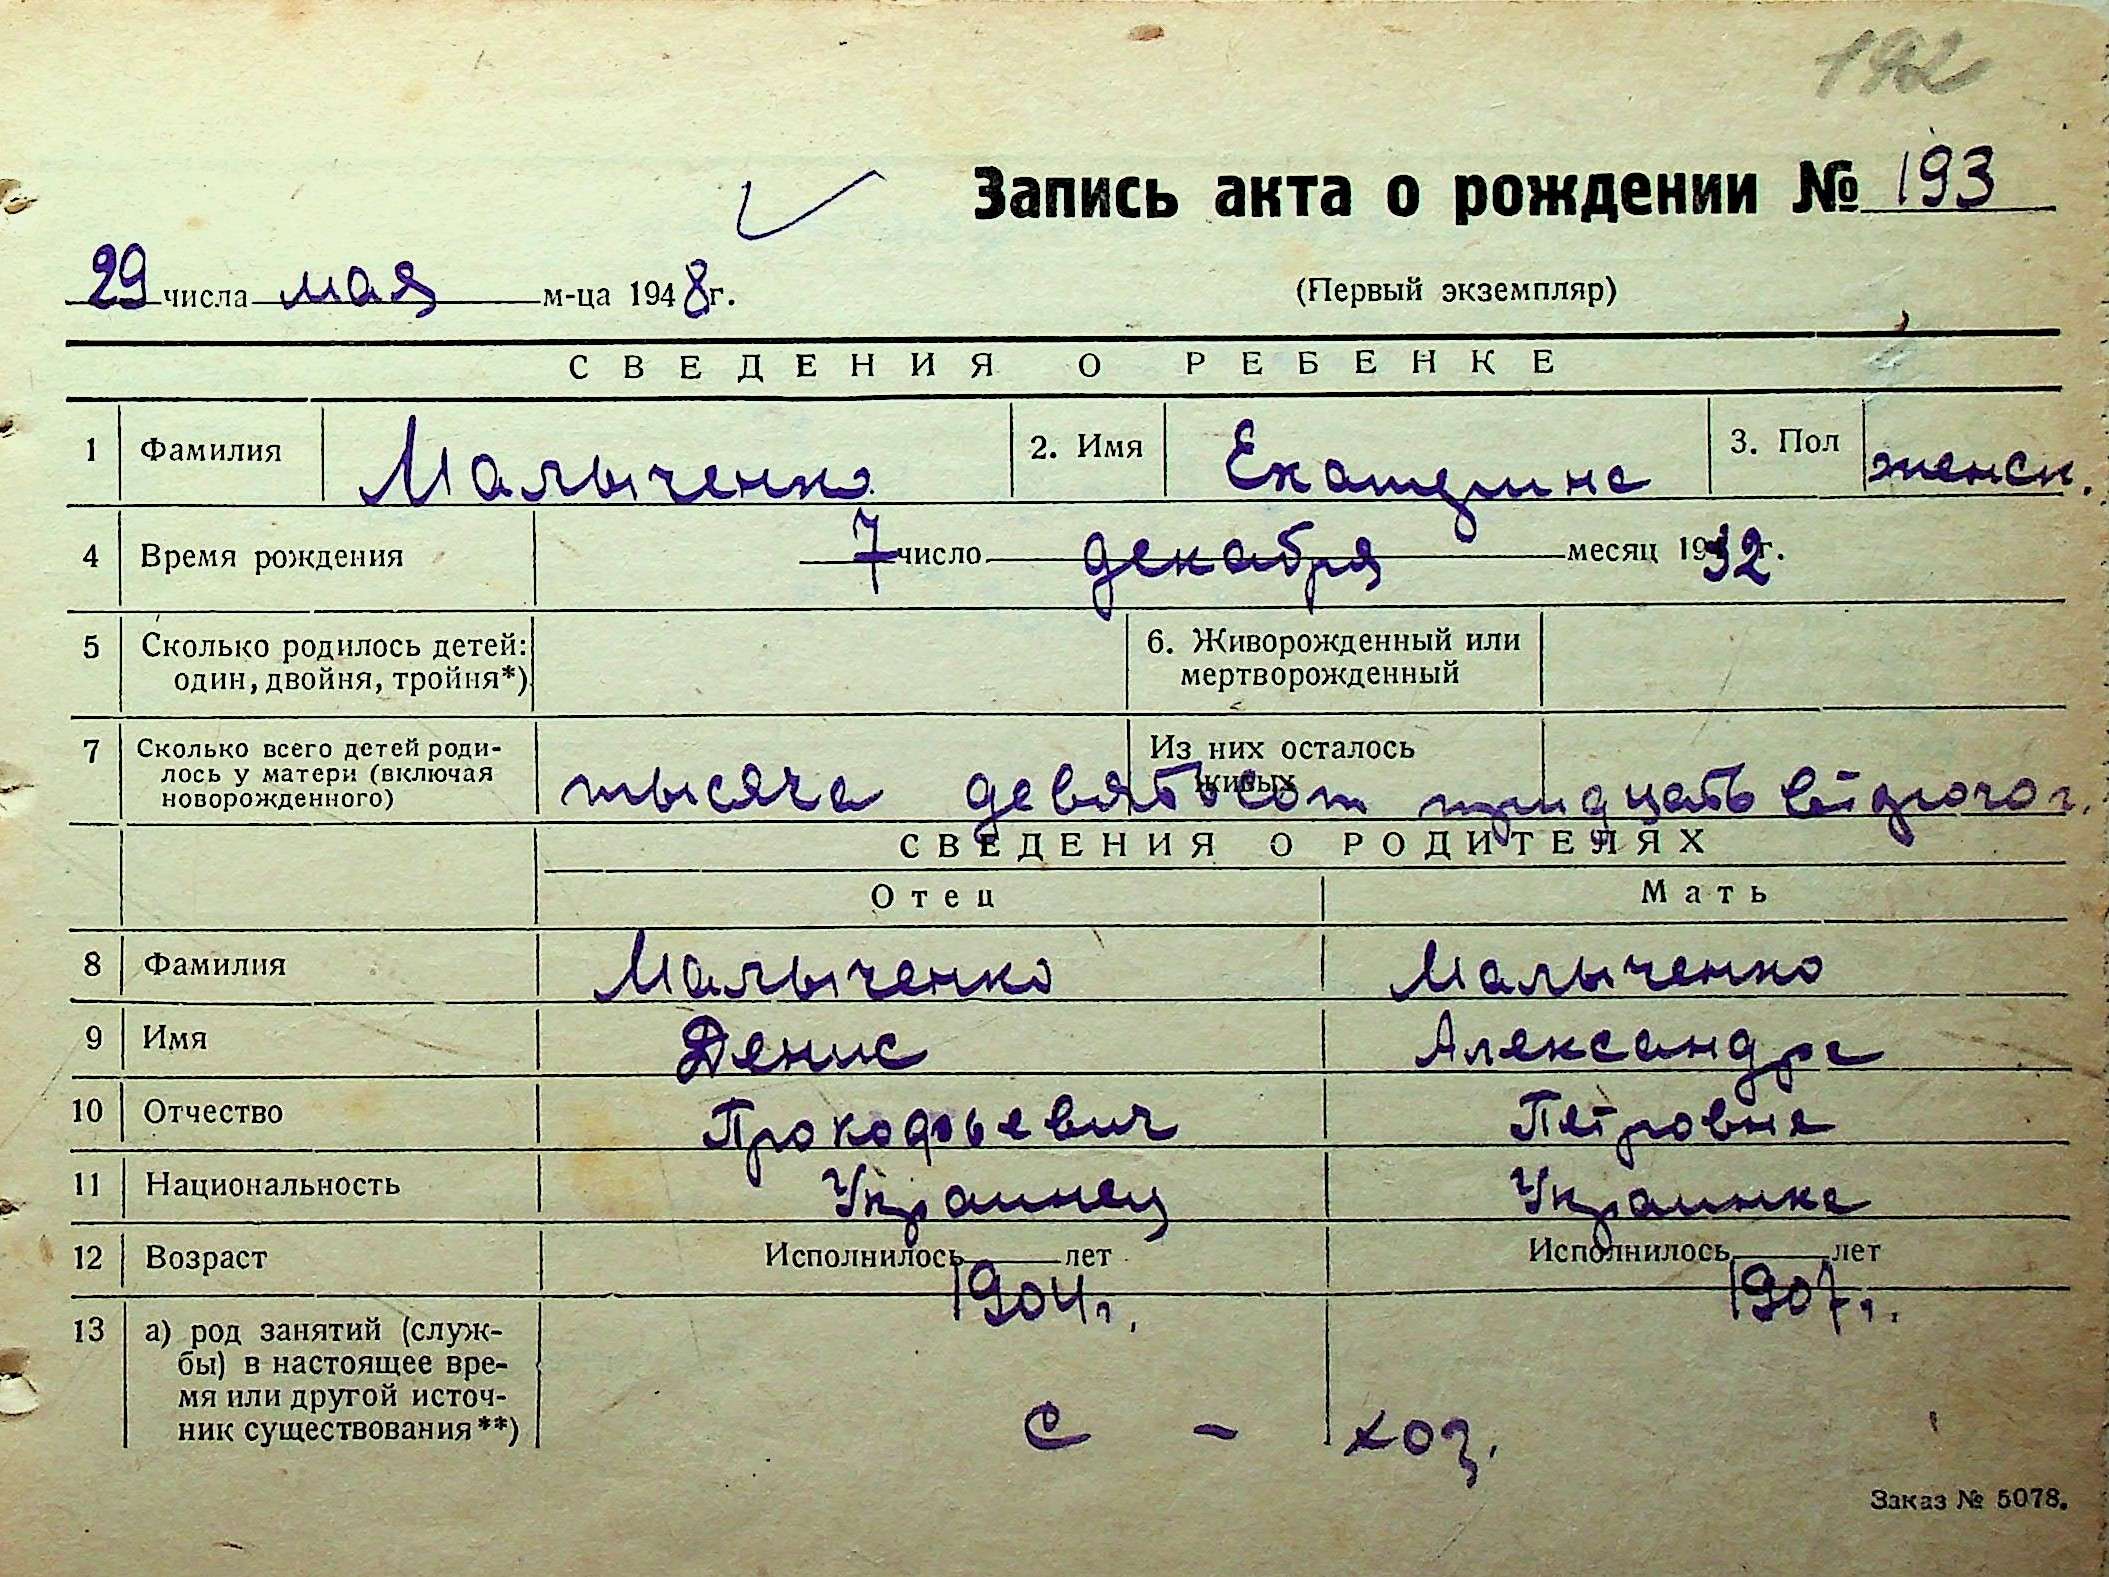 192
Запись акта о рождении № 193
29 числа мая м-ца 1948 г.
(Первый экземпляр)
СВЕДЕНИЯ О РЕБЕНКЕ
1 Фамилия Малыченко 2. Имя Екатерина 3. Пол женск.
4 Время рождения 7 число декабря месяц 1932 г.
5 Сколько родилось детей: 6. Живорожденный или
один, двойня, тройня*) мертворожденный
7 Сколько всего детей роди- Из них осталось
лось у матери (включая живых
новорожденного)
тысяча девятьсот тридцать второго г.
СВЕДЕНИЯ О РОДИТЕЛЯХ
Отец Мать
8 Фамилия Малыченко Малыченко
9 Имя Денис Александра
10 Отчество Прокофьевич Петровна
11 Национальность Украинец Украинка
12 Возраст Исполнилось лет Исполнилось лет
1904 г. 1907 г.
13 а) род занятий (служ-
бы) в настоящее вре-
мя или другой источ-
ник существования**)
с - хоз.
Заказ № 5078.